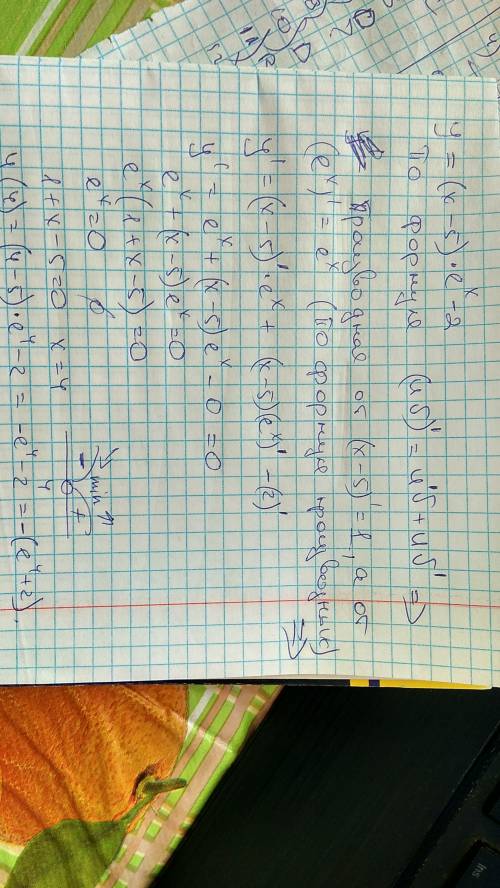 y = (x-5)·eˣ-2
По формуле (uv)' = u'v + uv' =>
производная от (x-5)' = 1, а от
(eˣ)' = eˣ (По формуле производных) =>
y' = (x-5)'·eˣ + (x-5)(eˣ)' - (2)'
y' = eˣ + (x-5)eˣ - 0 = 0
eˣ + (x-5)eˣ = 0
eˣ(1+x-5) = 0
eˣ = 0 ∅
1+x-5=0 x=4
- + 4 min
y(4) = (4-5)·e⁴-2 = -e⁴-2 = -(e⁴+2).
Ins